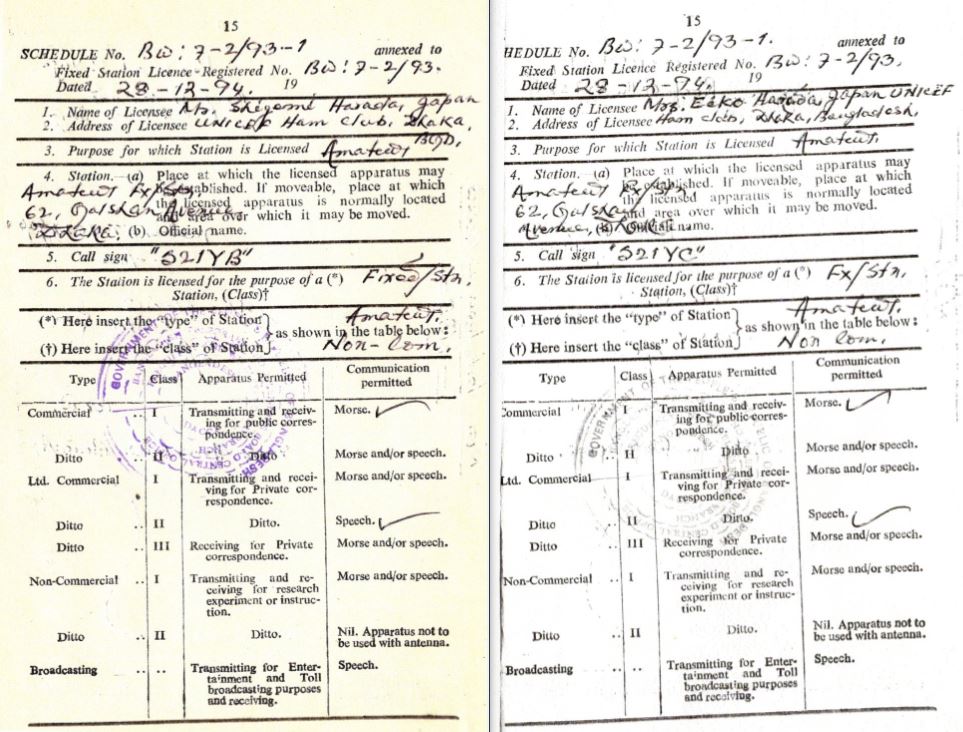 15
SCHEDULE No. BW: 7-2/93-1 annexed to
Fixed Station Licence Registered No. BW: 7-2/93.
Dated 28-12-94. 19
1. Name of Licensee Mr. Shigemi Harada, Japan
2. Address of Licensee UNICEF Ham Club, Dhaka,
BGD.
3. Purpose for which Station is Licensed Amateur
4. Station.—(a) Place at which the licensed apparatus may
Amateur Fx/Stn established. If moveable, place at which
62, Gulshan the licensed apparatus is normally located
Avenue and area over which it may be moved.
Dhaka, (b) Official name.
5. Call sign "S21YB"
6. The Station is licensed for the purpose of a (*) Fixed/Stn,
Station, (Class)†
(*) Here insert the "type" of Station Amateur.
as shown in the table below:
(†) Here insert the "class" of Station Non-Com.
Type Class Apparatus Permitted Communication permitted
Commercial .. I Transmitting and receiv-
ing for public corres-
pondence. Morse.
Ditto .. II Ditto Morse and/or speech.
Ltd. Commercial I Transmitting and recei-
ving for Private cor-
respondence. Morse and/or speech.
Ditto .. II Ditto. Speech.
Ditto .. III Receiving for Private
correspondence. Morse and/or speech.
Non-Commercial .. I Transmitting and re-
ceiving for research
experiment or instruc-
tion. Morse and/or speech.
Ditto .. II Ditto. Nil. Apparatus not to
be used with antenna.
Broadcasting .. .. Transmitting for Enter-
tainment and Toll
broadcasting purposes
and receiving. Speech.
15
HEDULE No. BW: 7-2/93-1. annexed to
Fixed Station Licence Registered No. BW: 7-2/93,
Dated 28-12-94. 19
1. Name of Licensee Mrs. Eeko Harada, Japan UNICEF
2. Address of Licensee Ham Club, Dhaka, Bangladesh,
3. Purpose for which Station is Licensed Amateur.
4. Station.—(a) Place at which the licensed apparatus may
Amateur Fx/Stn established. If moveable, place at which
62, Gulshan the licensed apparatus is normally located
and area over which it may be moved.
Avenue, (b) Official name.
5. Call sign "S21YC"
6. The Station is licensed for the purpose of a (*) Fx/Stn,
Station, (Class)†
(*) Here insert the "type" of Station Amateur.
as shown in the table below:
(†) Here insert the "class" of Station Non Com.
Type Class Apparatus Permitted Communication permitted
Commercial .. I Transmitting and receiv-
ing for public corres-
pondence. Morse.
Ditto . II Ditto Morse and/or speech.
Ltd. Commercial I Transmitting and recei-
ving for Private cor-
respondence. Morse and/or speech.
Ditto .. II Ditto. Speech.
Ditto .. III Receiving for Private
correspondence. Morse and/or speech.
Non-Commercial .. I Transmitting and re-
ceiving for research
experiment or instruc-
tion. Morse and/or speech.
Ditto .. II Ditto. Nil. Apparatus not to
be used with antenna.
Broadcasting .. .. Transmitting for Enter-
tainment and Toll
broadcasting purposes
and receiving. Speech.